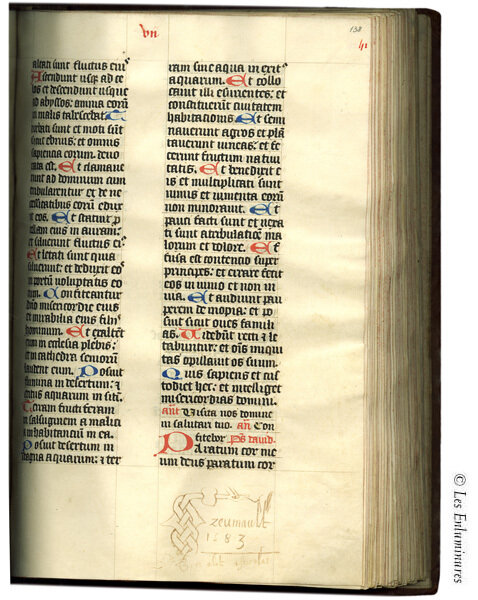 vii
138
altati sunt fluctus eiꝰ
Ascendunt usqꝫ ad ce
los et descendunt usque
ad abyssos: anima eorū
in malis tabescebat. T
urbati sunt et moti sūt
sicut ebrius: et omnis
sapiencia eorum devo
rata est. Et clamave
runt ad dominum cum
tribularentur et de ne
cessitatibus eorū eduxit
eos. Et statuit p
cellam eius in auram:
et siluerunt fluctus eiꝰ
Et letati sunt quia
siluerunt: et deduxit eos
in portū voluptatis eo
rum. Confiteantur
dn̄o misericordie eius
et mirabilia eius filiis
hominum. Et exaltēt
eum in ecclesia plebis:
et in cathedra seniorū
laudent eum. Posuit
flumina in desertum: ⁊
exitus aquarum in sitī.
Terram fructiferam
in salsuginem a malicia
inhabitancium in ea.
Posuit desertum in
stagna aquarum: ⁊ ter
ram sine aqua in exitꝰ
aquarum. Et collo
cavit illic esurientes: et
constituerūt civitatem
habitacionis. Et semi
naverunt agros et plā
taverunt vineas: et fe
cerunt fructum nativi
tatis. Et benedixit e
is et multiplicati sunt
nimis et iumenta eorū
non minoravit. Et
pauci facti sunt et vexa
ti sunt atribulacione ma
lorum et dolore. Et ef
fusa est contencio super
principes: et errare fecit
eos in invio et non in
via. Et adiuvit pau
perem de inopia: et po
suit sicut oves famili
as. Videbūt recti ⁊ le
tabuntur: et oīs iniqui
tas oppilavit os suum.
Quis sapiens et cus
todiet hec: et intelliget
misericordias domini.
ant Visita nos domine
in salutari tuo. an Con
fitebor Ps david.
Paratum cor me
um deus paratum cor
1583
© Les Enluminures